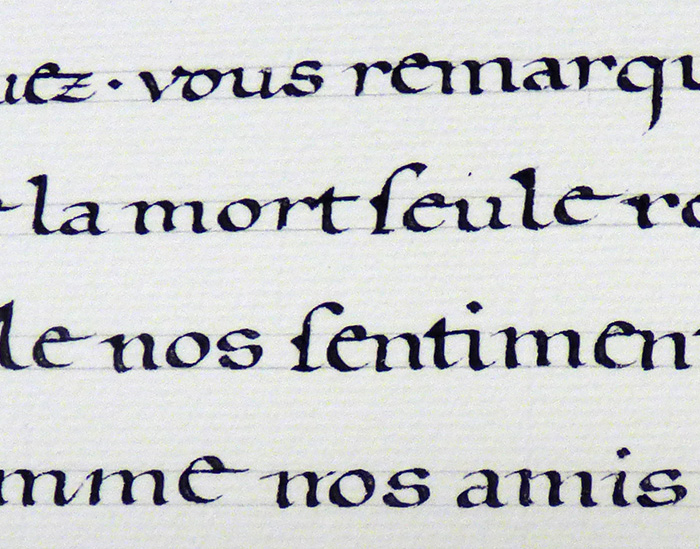 uez · vous remarqu
la mort ſeule re
le nos ſentiment
mme nos amis